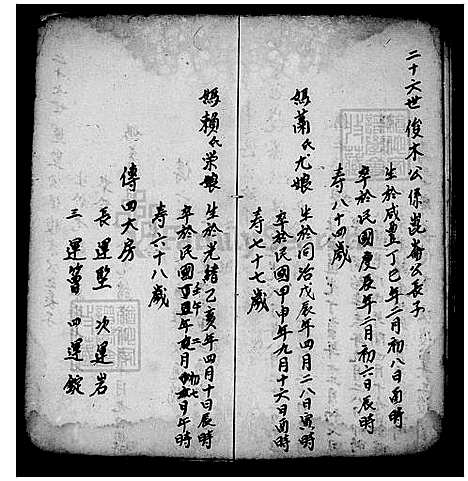 二十六世 俊木公係崑崙公長子
生於咸豐丁巳年二月初八日酉時
卒於民國庚辰年二月初六日辰時
壽八十四歲
媽蕭氏尤娘
生於同治戊辰年四月二八日寅時
卒於民國甲申年九月十六日酉時
壽七十七歲
媽賴氏荣娘
生於光緒乙亥年四月十日辰時
卒於民國壬午年二月初七日午時
壽六十八歲
傳四大房
長運堅 次運岩
三運籌 四運錠